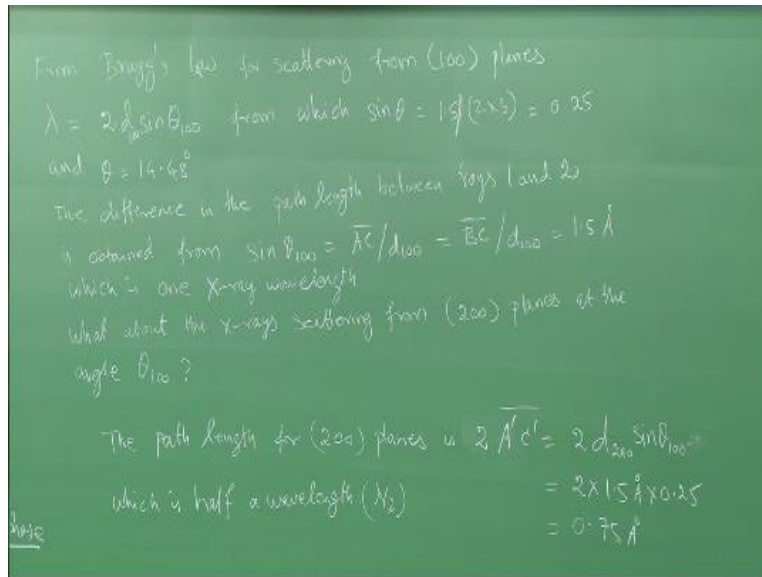 From Bragg's law for scattering from (100) planes
λ = 2 d₁₀₀ sin θ₁₀₀ from which sin θ = 1.5/(2×3) = 0.25
and θ = 14.48°
The difference in the path length between rays 1 and 2
is obtained from sin θ₁₀₀ = A̅C̅/d₁₀₀ = B̅C̅/d₁₀₀ = 1.5 Å
which is one X-ray wavelength
What about the X-rays scattering from (200) planes at the
angle θ₁₀₀ ?
The path length for (200) planes is 2 A̅'C̅' = 2 d₂₀₀ sin θ₁₀₀
= 2 × 1.5 Å × 0.25
which is half a wavelength (λ/2)
= 0.75 Å